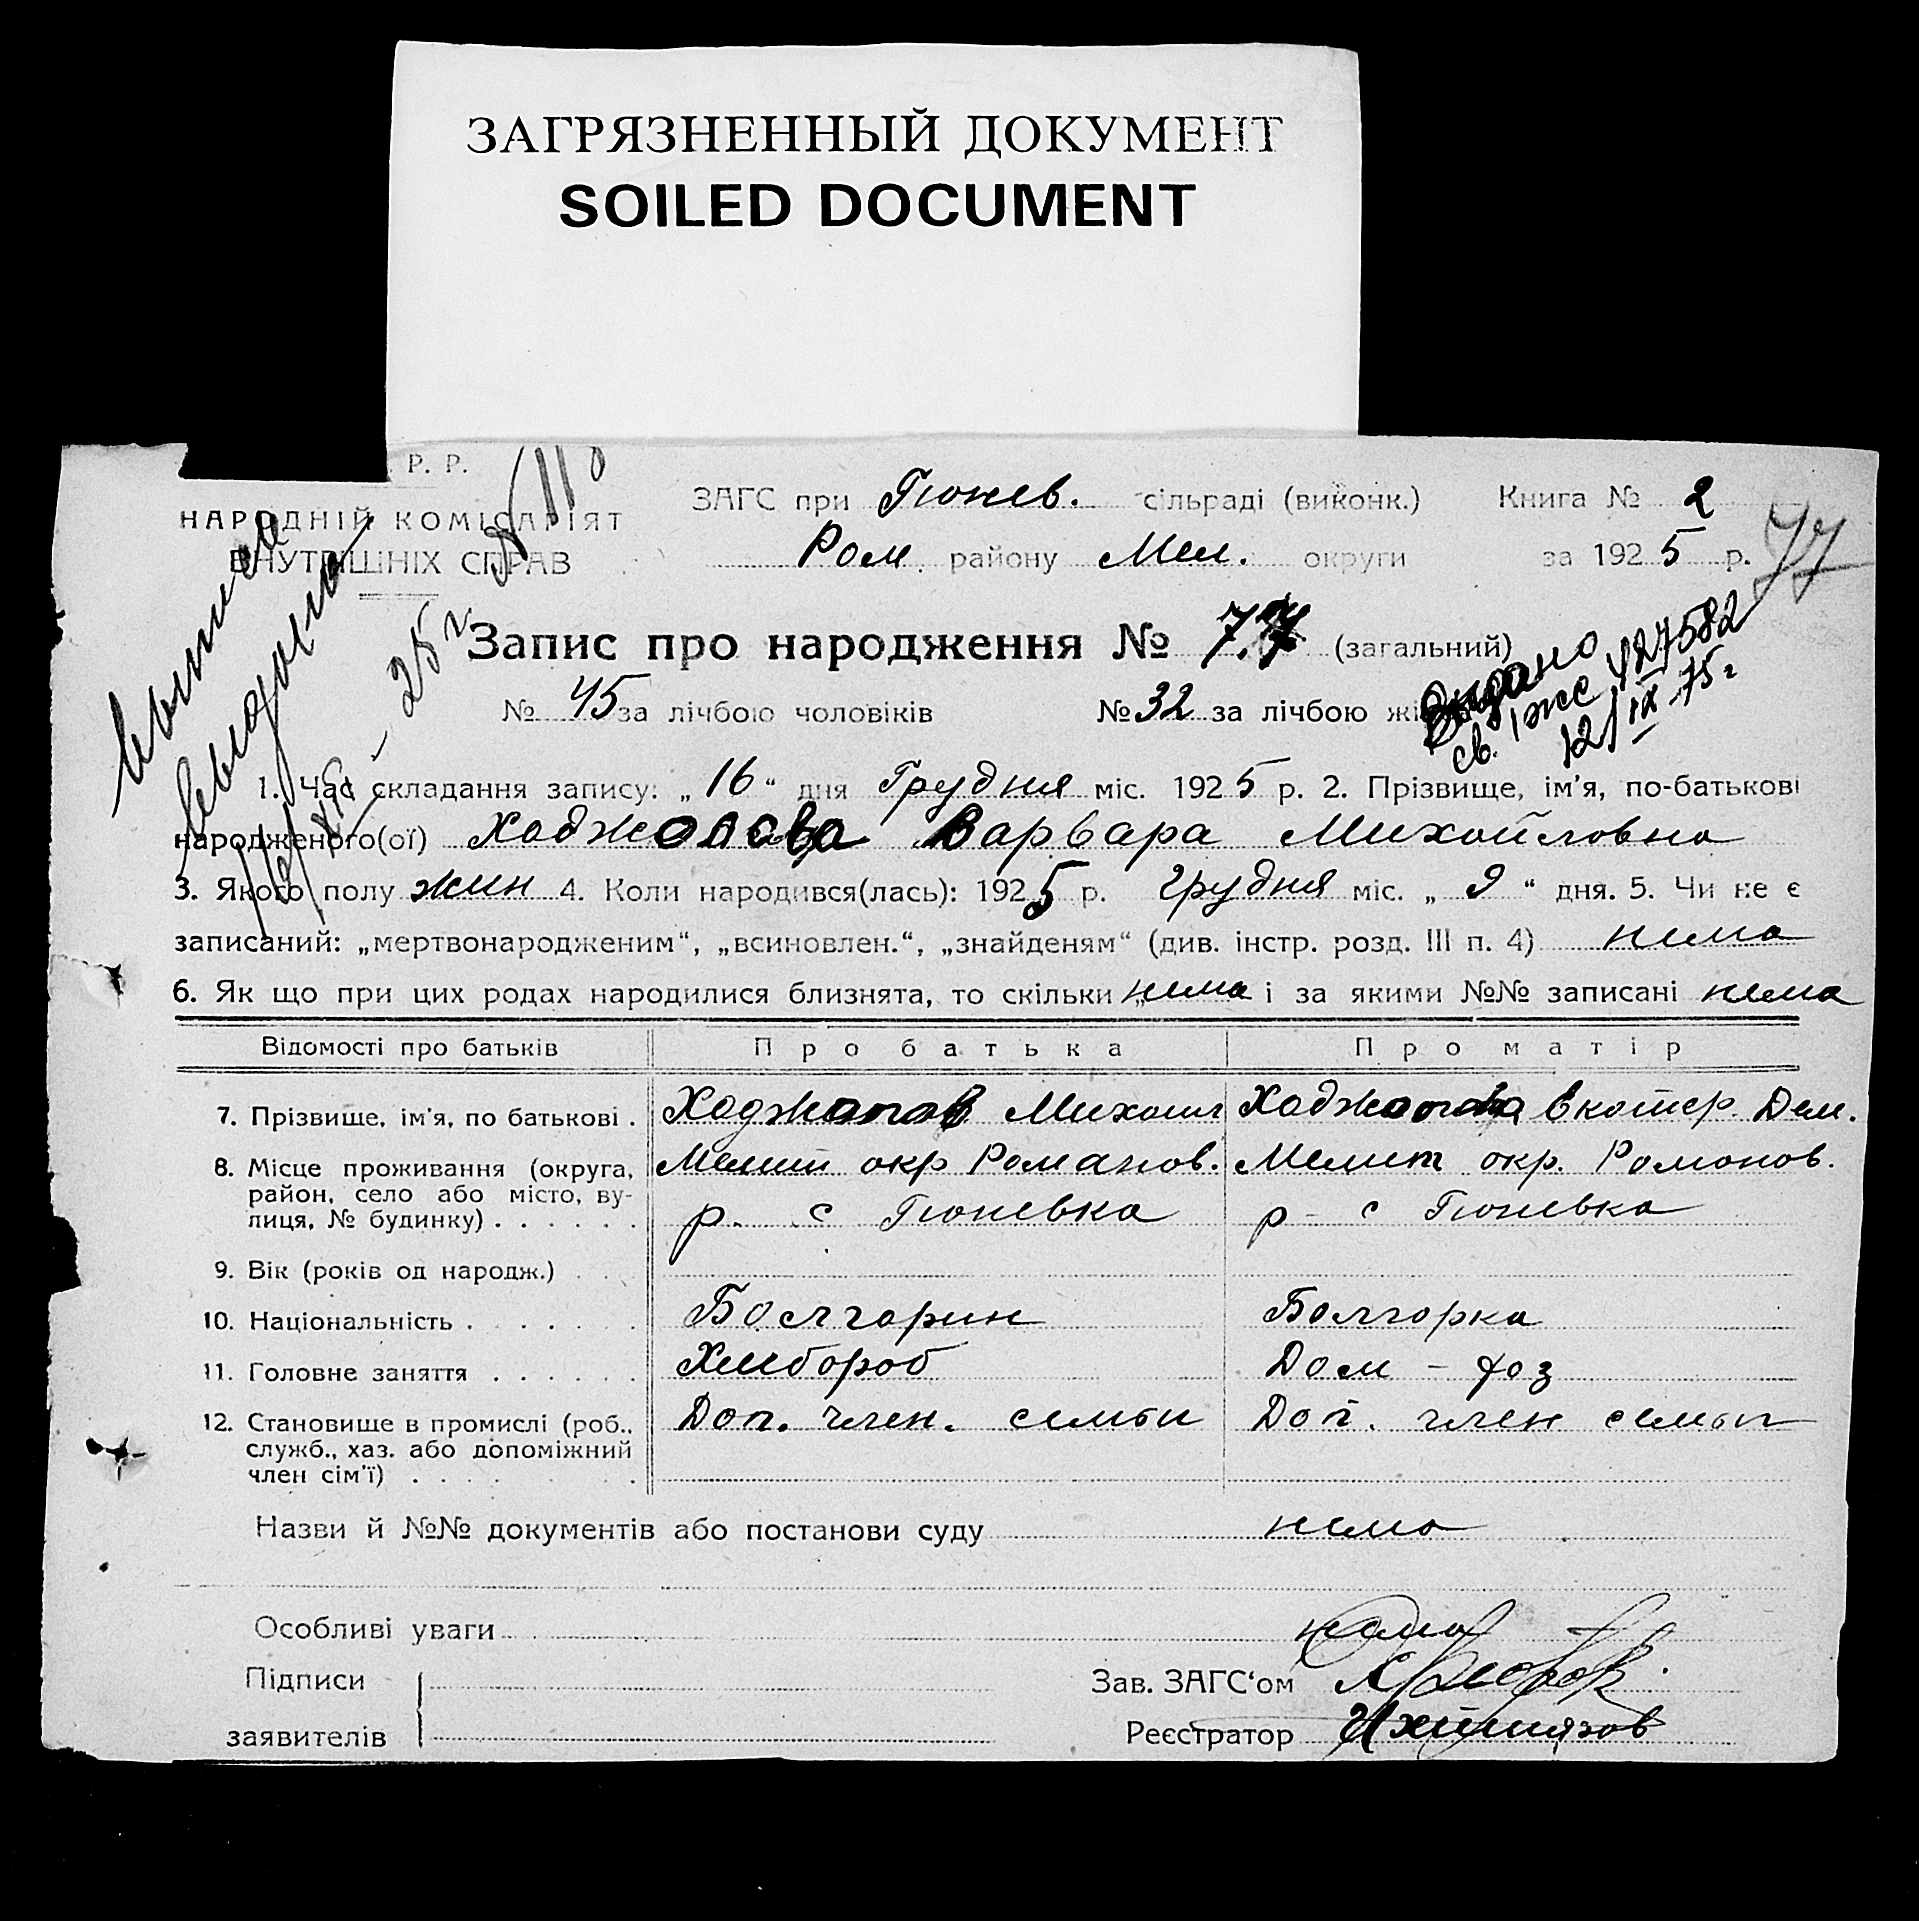 ЗАГРЯЗНЕННЫЙ ДОКУМЕНТ
SOILED DOCUMENT
Р. Р.
НАРОДНІЙ КОМІСАРІЯТ
ВНУТРІШНІХ СПРАВ
ЗАГС при Гюнев. сільраді (виконк.) Книга № 2
Ром. району Мел. округи за 1925 р. 77
Запис про народження № 77 (загальний)
№ 45 за лічбою чоловіків № 32 за лічбою
Видано
св. 127582
12/IX 75 г
1. Час складання запису: „16“ дня Грудня міс. 1925 р. 2. Прізвище, ім'я, по-батькові
народженого(ої) Варвара Михайловна
3. Якого полу жин 4. Коли народився(лась): 1925 р. грудня міс. „9“ дня. 5. Чи не є
записаний: „мертвонародженим“, „всиновлен.“, „знайденям“ (див. інстр. розд. III п. 4) нема
6. Як що при цих родах народилися близнята, то скільки „нема і за якими №№ записані нема
Відомості про батьків Про батька Про матір
7. Прізвище, ім'я, по батькові . Михаил Дем.
8. Місце проживання (округа, район, село або місто, ву-лиця, № будинку) . . . . . . Мелит окр Романов. Мелит окр. Романов.
р. с Гюневка р - с Гюневка
9. Вік (років од народж.) . . .
10. Національність . . . . . . Болгарин Болгорка
11. Головне заняття . . . . . . Хлибороб Дом - хоз
12. Становище в промислі (роб., служб., хаз. або допоміжний член сім'ї) . . . . . . Доп. член. семьи Доп. член семьи
Назви й №№ документів або постанови суду нема
Особливі уваги нема
Підписи Зав. ЗАГС'ом
заявителів Реєстратор